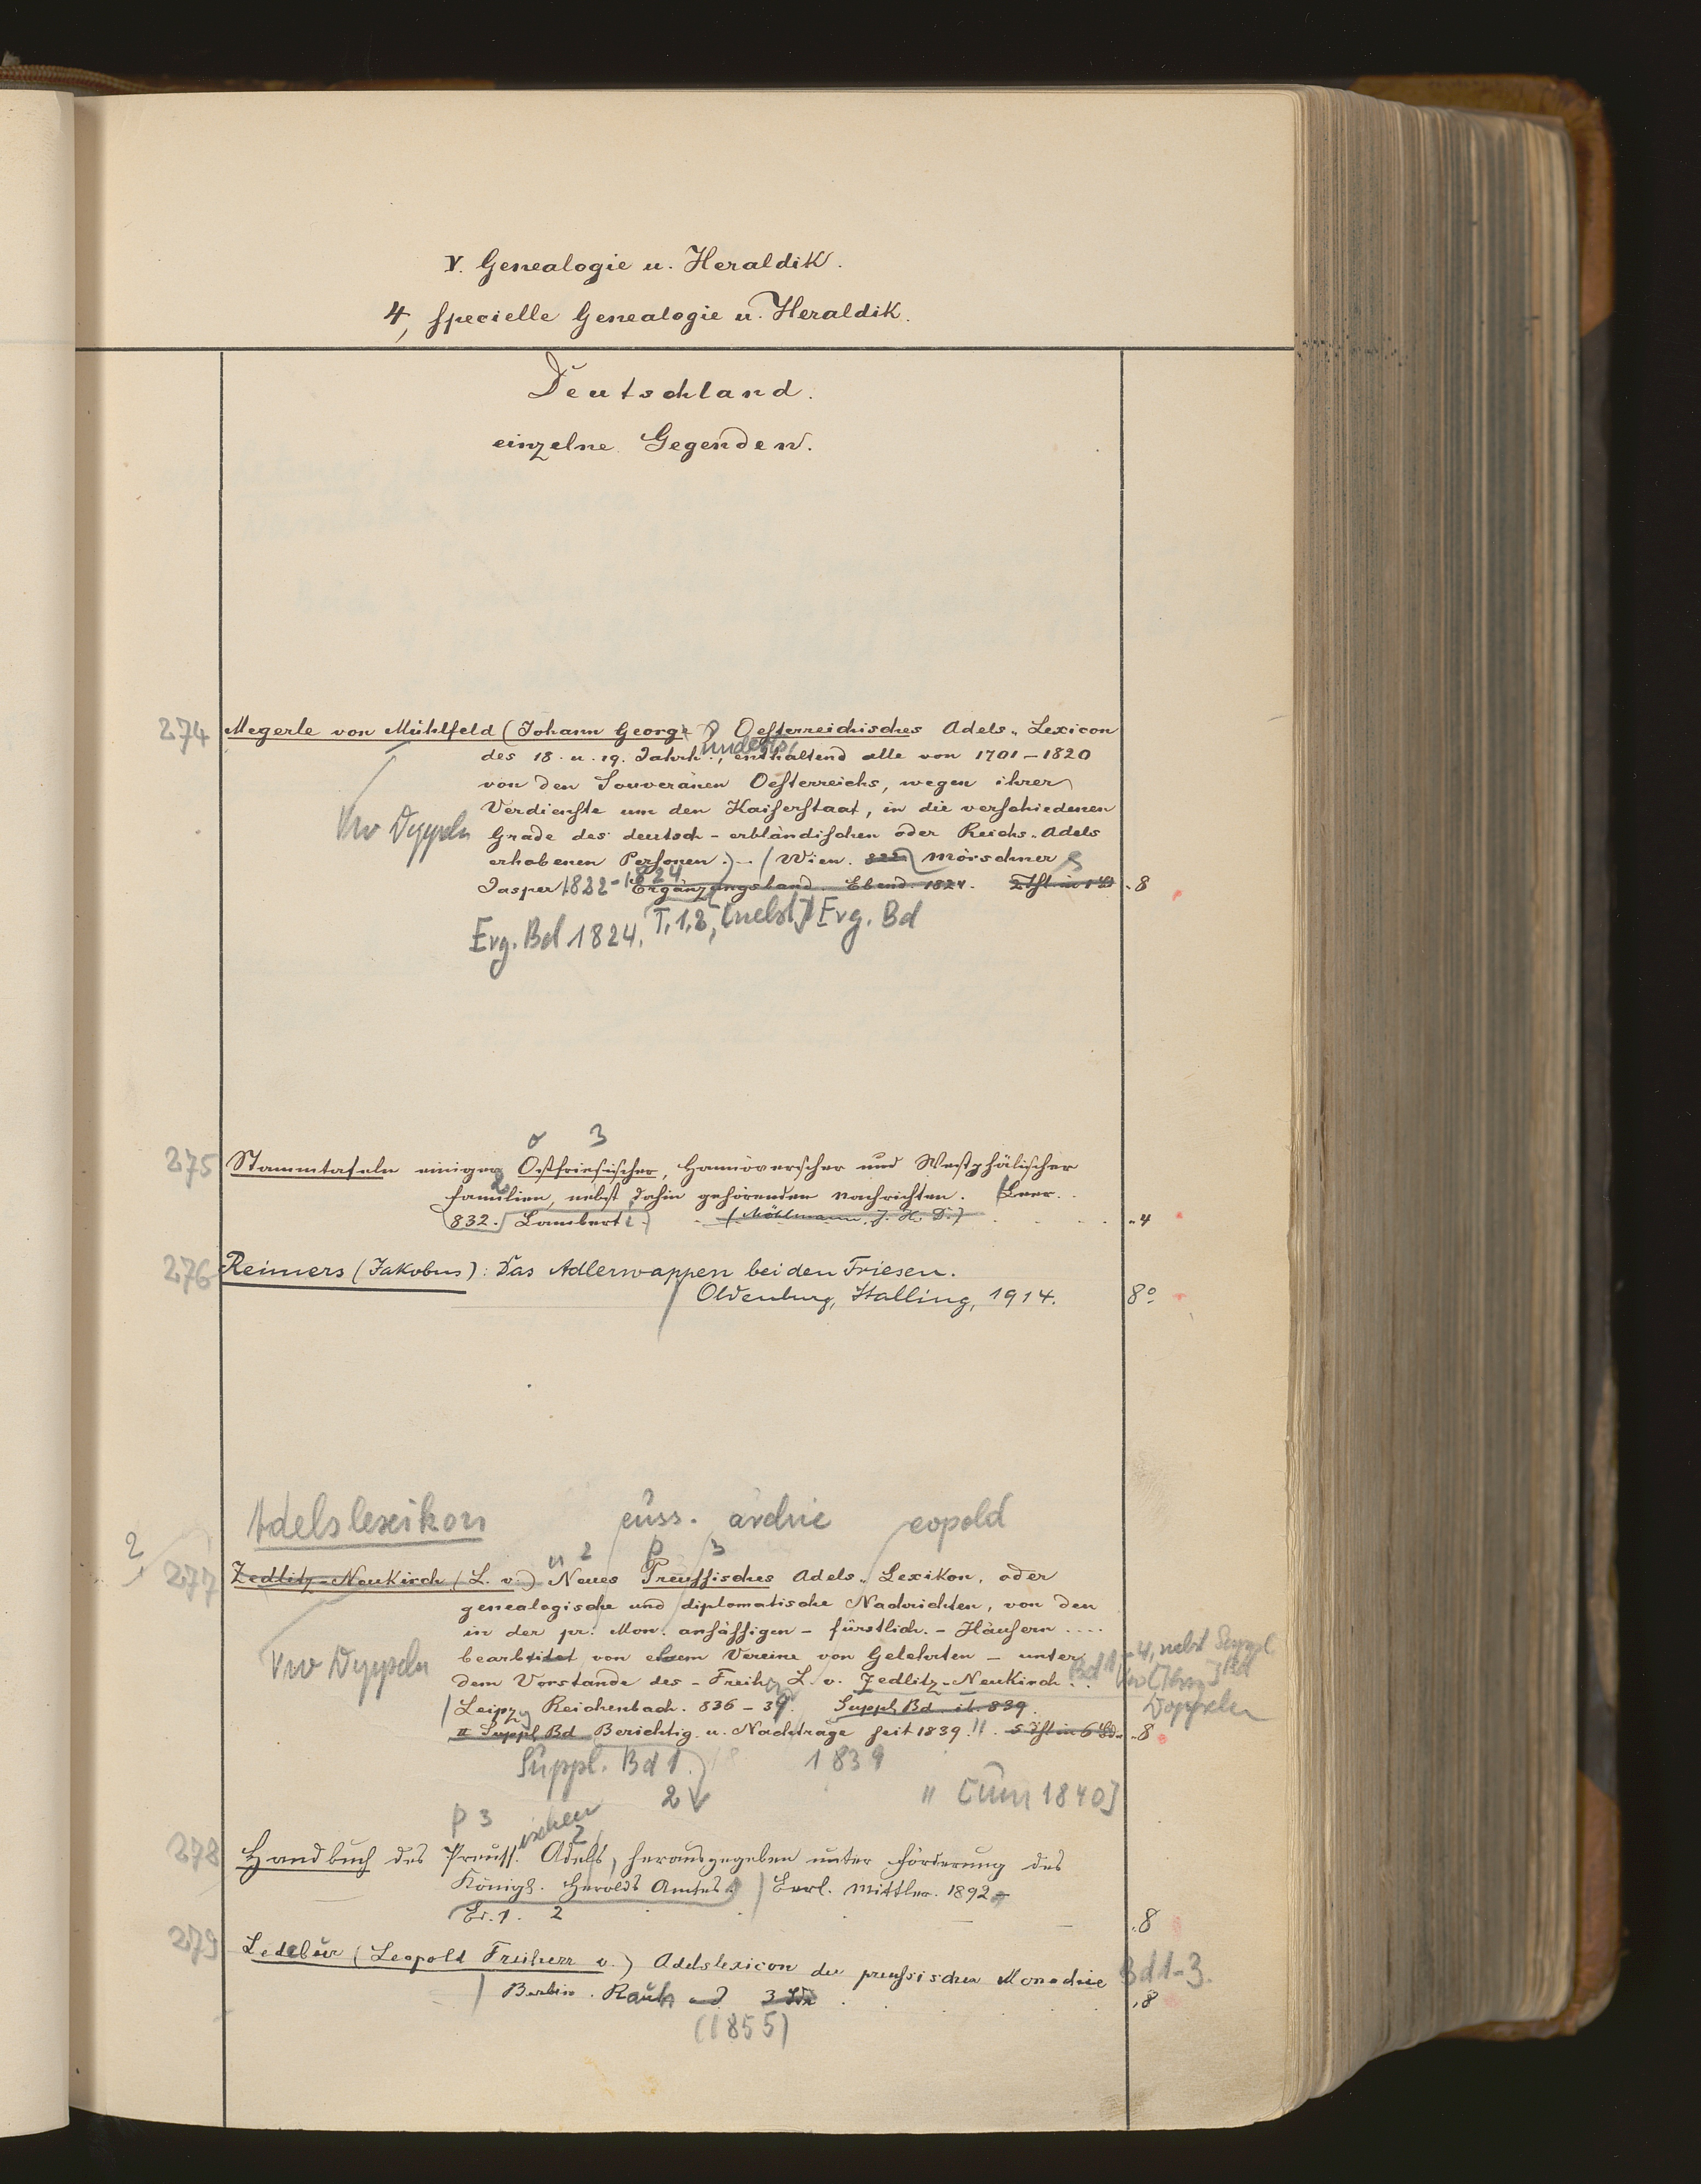 V. Genealogie u. Heraldik.
4, specielle Genealogie u. Heraldik.
Deutschland.
einzelne Gegenden.
274 Megerle von Mühlfeld (Johann Georg) Oesterreichisches Adels-Lexicon
des 18. u. 19. Jahrh., enthaltend alle von 1701–1820
von den Souveränen Oesterreichs, wegen ihrer
Verdienste um den Kaiserstaat, in die verschiedenen
Grade des deutsch-erbländischen oder Reichs-Adels
erhobenen Personen.) – / Wien. 822 Mörschner
Jasper 1822–1824 Ergänzungsband. Ebend. 1824. 2 Thl in 1 Bd „8
Vw Doppeln
Erg. Bd 1824. T. 1.2, [nebst] Erg. Bd
3
275 Stammtafeln einiger Ostfriesischer, Hannöverscher und Westphälischer
Familien, nebst dahin gehörenden Nachrichten. Leer.
832. Lamberti. (Möhlmann, J. H. D.) „4
276 Reimers (Jakobus): Das Adlerwappen bei den Friesen.
Oldenburg, Stalling, 1914. 8°
Adelslexikon euss. archie eopold
2 u 2 p 3
277 Zedlitz-Neukirch (L. v.) Neues Preussisches Adels-Lexikon, oder
genealogische und diplomatische Nachrichten, von den
in der pr. Mon. ansässigen – fürstlich. – Häusern ....
bearbeitet von einem Vereine von Gelehrten – unter
dem Vorstande des – Freih. L. v. Zedlitz-Neukirch. Bd 1–4, nebst Suppl Bd
Vw Doppeln
Doppeln
Leipzg Reichenbach. 836–39. Suppl Bd ib. 839.
II Suppl Bd Berichtig. u. Nachträge seit 1839. 5 Thl in 6 Bd „8
Suppl. Bd 1. 1839
2 " [um 1840]
p 3 ischen 2
278 Handbuch des Preuss. Adels, herausgegeben unter Förderung des
Königl. Herolds Amtes. / Berl. Mittler. 1892–
Bd. 1. 2 „8
279 Ledebur (Leopold Freiherr v.) Adelslexicon der preussischen Monarchie Bd 1-3.
Berlin. Rauh 3 Bde „8
(1855)